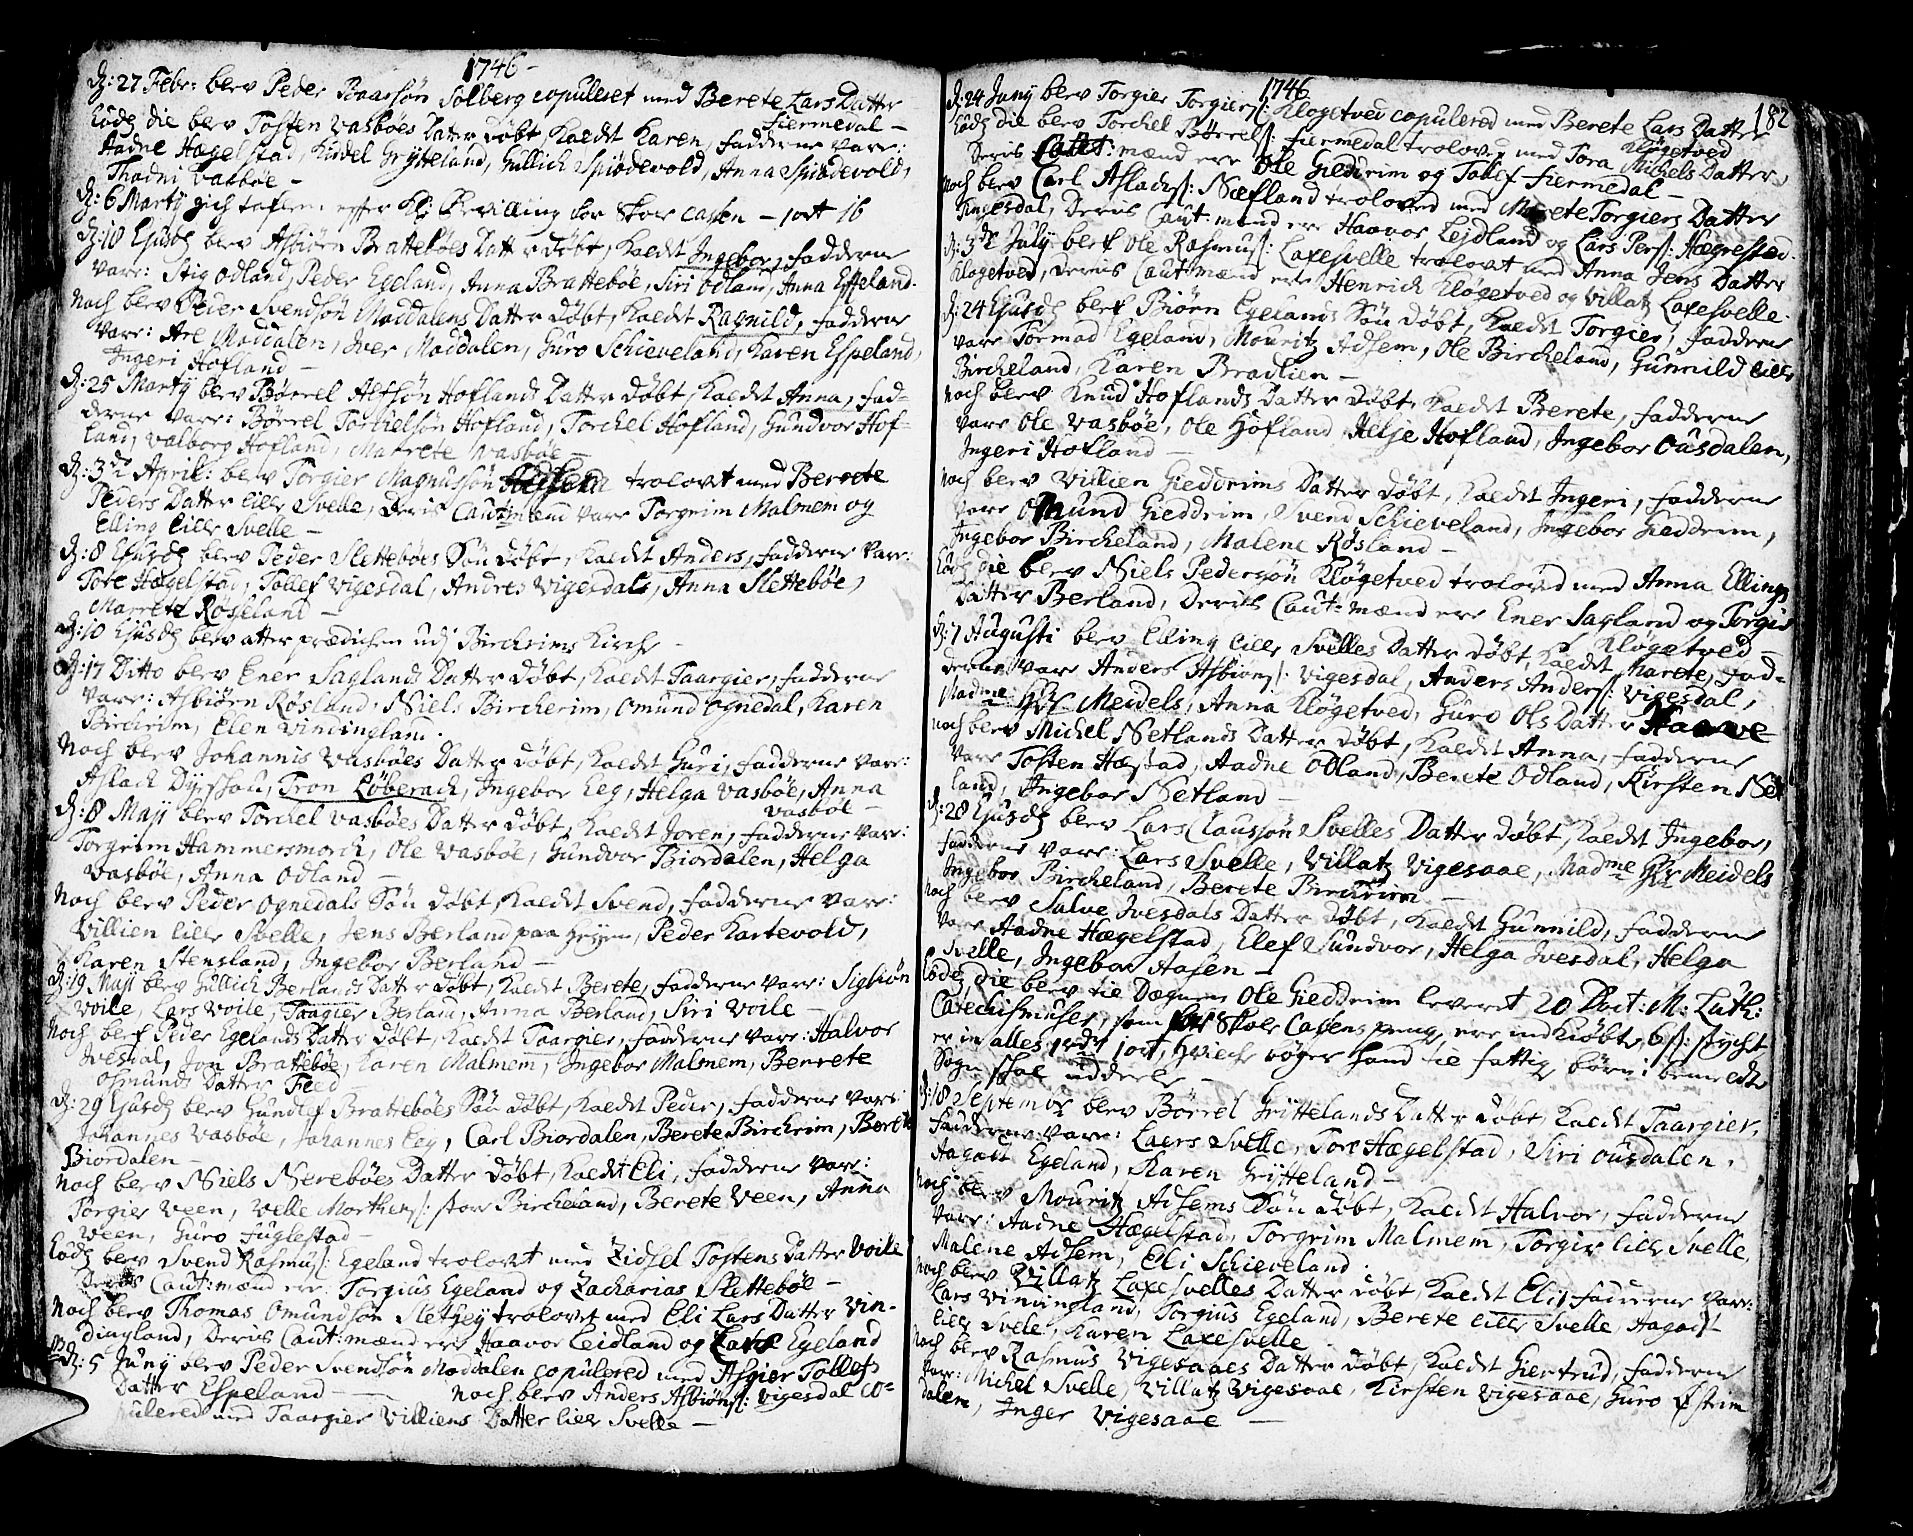 1746 -
d: 27 Febr: blev Peder Baarsøn Solberg copuleret med Berete Lars Datter
Fiermedal -
Eodem die blev Tosten Vasbøes Datter døbt, Kaldt Karen, fadderne vare:
Aadne Hægelstad, Kittel Grytteland, Gullich Spiødevold, Anna Spiødevold,
Thadni Vasbøe -
d: 6 Martij gich taflen efter Kl: Bevilling for Skole Cassen - 1 ort 16
d: 18 Ejusdem blev Asbiørn Bratteböes Datter døbt, Kaldt Ingebor, fadderne
vare: Stig Odland, Peder Egeland, Anna Bratteböe, Siri Odland, Anna Espeland.
Noch blev Peder Svendsøn Moddalens Datter døbt, Kaldt Ragnild, fadderne
vare: Are Moddalen, Iver Moddalen, Guro Schieveland, Karen Espeland,
Ingeri Hofland -
d: 25 Martij blev Børrel Alfsøn Hoflands Datter døbt, Kaldt Anna, fad-
derne vare: Børrel Torchelsøn Hofland, Torchel Hofland, Gundvor Hof-
land, Valborg Hofland, Marrete Vasbøe -
d: 3die April: blev Torgier Magnussøn trolovt med Berrete
Peders Datter lille Svelle, Deris Cautmænd vare Torgrim Malmem og
Elling lille Svelle -
d: 8 Ejusdem blev Peder Slettebøes Søn døbt, Kaldt Anders, fadderne vare:
Tore Hægelstad, Tollef Vigesdal, Andres Vigesdals, Anna Slettebøe,
Marrete Røseland -
d: 10 Ejusdem blev atter prædichen udj Bircheims Kirche -
d: 17 Ditto blev Ener Saglands Datter døbt, Kaldt Taargier, fadderne
vare: Asbiörn Røsland, Niels Bircherim, Omund Ognedal, Karen
Bircherim, Elen Vindingland.
Noch blev Johannis Vasbøes Datter døbt, Kaldt Guri, fadderne vare:
Aslach Dyrskou, Tron Løberach, Ingebor Eeg, Helga Vasbøe, Anna
Vasbøe -
d: 8 Maji blev Torchel Vasbøes Datter døbt, Kaldt Joren, fadderne vare:
Torgrim Hammersmarch, Ole Vasbøe, Gundvor Biordalen, Helga
Vasbøe, Anna Odland -
Noch blev Peder Ognedals Søn døbt, Kaldt Svend, fadderne vare:
Villien lille Svelle, Jens Berland paa Heyen, Peder Kartevold,
Karen Stensland, Ingebor Berland -
d: 19 Maji blev Gullich Berlands Datter døbt, Kaldt Berete, fadderne vare: Sigbiön
Voile, Lars Voile, Taagier Berland, Anna Berland, Siri Voile -
Noch blef Peder Egelands Datter døbt, Kaldt Taargier, fadderne vare: Halvor
Ivesdal, Jon Brattebøe, Karen Malmem, Ingebor Malmem, Berrete
Osmunds Datter Feed -
d: 29 Ejusdem blev Gundlef Brattebøes Søn døbt, Kaldt Peder, fadderne vare
Johannes Vasbøe, Johannes Eeg, Carl Biordalen, Berete Bircheim, Berete
Biordalen -
Noch blev Niels Nerebøes Datter døbt, Kaldt Eli, fadderne vare:
Torgier Veen, Velle Morthens: store Bircheland, Berete Veen, Anna
Veen, Guro Fuglestad -
Eodem blev Svend Rasmus: Egeland trolovt med Zidsel Tostens Datter Voile
Deris Caut: mænd ere Torgius Egeland og Zacharias Slettebøe -
Noch blev Thomas Omundsøn Slethey trolovet med Eli Lars Datter Vin-
dingland, Deris Caut: mænd ere Haavor Leidland og Lars Egeland
d: 5 Junij blev Peder Svendsøn Moddalen copulered med Asgier Tollefs
Datter Espeland - Noch blev Anders Asbiöns: Vigesdal co-
pulered med Taargier Villiens Datter lille Svelle -
1746
182
d: 24 Junij blev Torgier Torgiers: Kløgetved copulered med Berete Lars Datter
Kløgetved
Eodem die blev Torchel Børrels: Fiermedal trolovet med Tora Michels Datter,
Deris Caut: mænd ere Ole Gieddrim og Tollef Fiermedal -
Noch blev Carl Aslachs: Næfland trolovet med Merete Torgiers Datter
Tingesdal, Deris Caut: mænd ere Haavor Lejdland og Lars Pers: Hægrestad.
d: 3die July blef Ole Rasmus: Laxesvelle trolovt med Anna Jens Datter
Kløgetved, Deris Caut: mænd ere Henrich Kløgetved og Villatz Laxesvelle.
d: 24 Ejusdem blef Biørn Egelands Søn døbt, Kaldt Torgier, fadderne
vare Tormod Egeland, Mouritz Adsem, Ole Bircheland, Gunnild lille
Bircheland, Karen Bradlien -
Noch blev Knud Hoflands Datter døbt, Kaldt Berete, fadderne
vare Ole Vasbøe, Ole Hofland, Heltje Hofland, Ingebor Ousdalen,
Ingeri Hofland -
Noch blev Villien Gieddrims Datter døbt, Kaldt Ingeri, fadderne
vare Omund Gieddrim, Svend Schieveland, Ingebor Gieddrim,
Ingebor Bircheland, Malene Røsland -
Eodem die blev Niels Pedersøn Kløgetved trolovet med Anna Ellings
Datter Berland, Deris Caut: mænd ere Ener Sagland og Torgier
Kløgetved -
d: 7 Augusti blev Elling lille Svelles Datter døbt, Kaldt Marete, fad-
derne vare Anders Asbiøns: Vigesdal, Anders Anders: Vigesdal,
Madme: Meidels, Anna Kløgetved, Guro Ols Datter Haave
Noch blev Michel Netlands Datter døbt, Kaldt Anna, fadderne
vare Tosten Hæstad, Aadne Odland, Berete Odland, Kirsten Net
land, Ingebor Netland -
d: 28 Ejusdem blev Lars Claussøn Svelles Datter døbt, Kaldt Ingebor,
fadderne vare: Lars Svelle, Villatz Vigesaae, Madme Meidels
Ingebor Bircheland, Berete Bircheim -
Noch blev Salve Ivesdals Datter døbt, Kaldt Gunnild, fadderne
vare Aadne Hægelstad, Elef Sundvor, Helga Ivesdal, Helga
Svelle, Ingebor Aasen -
Eodem die blev til Degnen Ole Gieddrim leveret 20 Doct: M: Luth:
Catechismuser, som for Skole Casens penge ere indkiøbte, 6 s: stycht
er in alles 1 rdr 1 ort, hvilche bøger hand til fattige børn i bemeldte
Sogn skal uddeele -
d: 18 Septembr blev Børrel Gryttelands Datter døbt, Kaldt Taargier,
fadderne vare: Laers Svelle, Tore Hægelstad, Siri Ousdalen,
Aagaat Egeland, Karen Grytteland -
Noch blev Mouritz Adsems Søn døbt, Kaldt Halvor, fadderne
vare: Aadne Hægelstad, Torgrim Malmem, Torgier lille Svelle,
Malene Adsem, Eli Schieveland.
Noch blev Villatz Laxesvelles Datter døbt, Kaldt Eli, fadderne vare:
Lars Vindingland, Torgius Egeland, Berete lille Svelle, Aagaat
lille Svele, Karen Laxesvelle -
Noch blev Rasmus Vigesaaes Datter døbt, Kaldt Giertrud, fadderne
vare: Michel Svelle, Villatz Vigesaae, Kirsten Vigesaae, Guro Østrim
dalen, Inger Vigesaae -